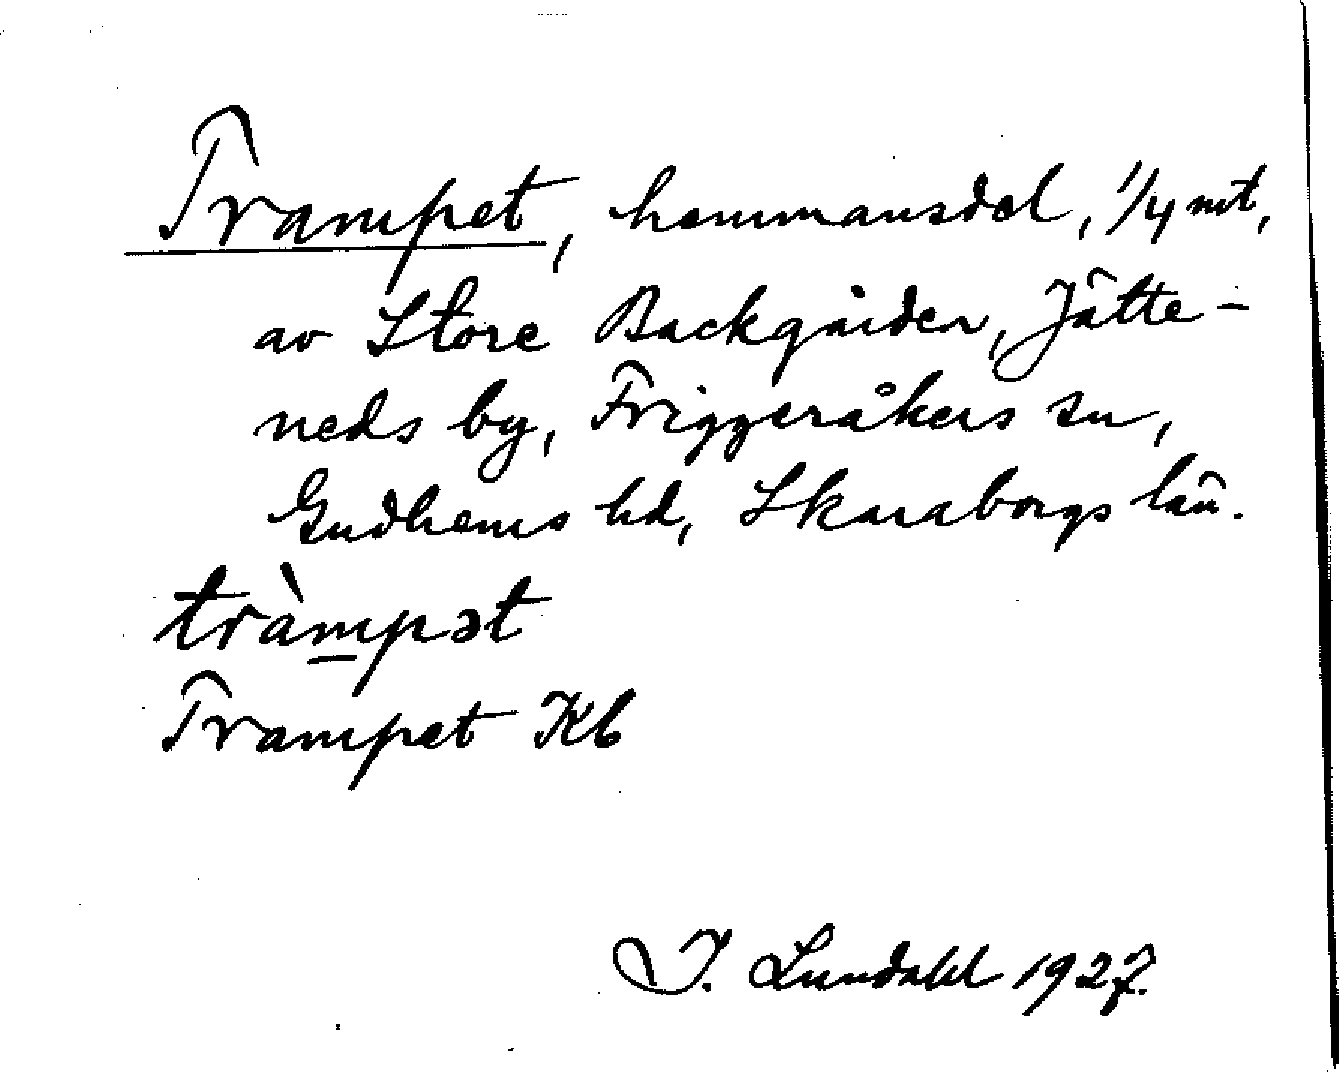 Trampet, hemmansdel, 1/4 mt,
av Store Backgården, Jätte-
neds by, Friggeråkers sn,
Gudhems hd, Skaraborgs län.
tràmpət
Trampet Kb
I. Lundahl 1927.